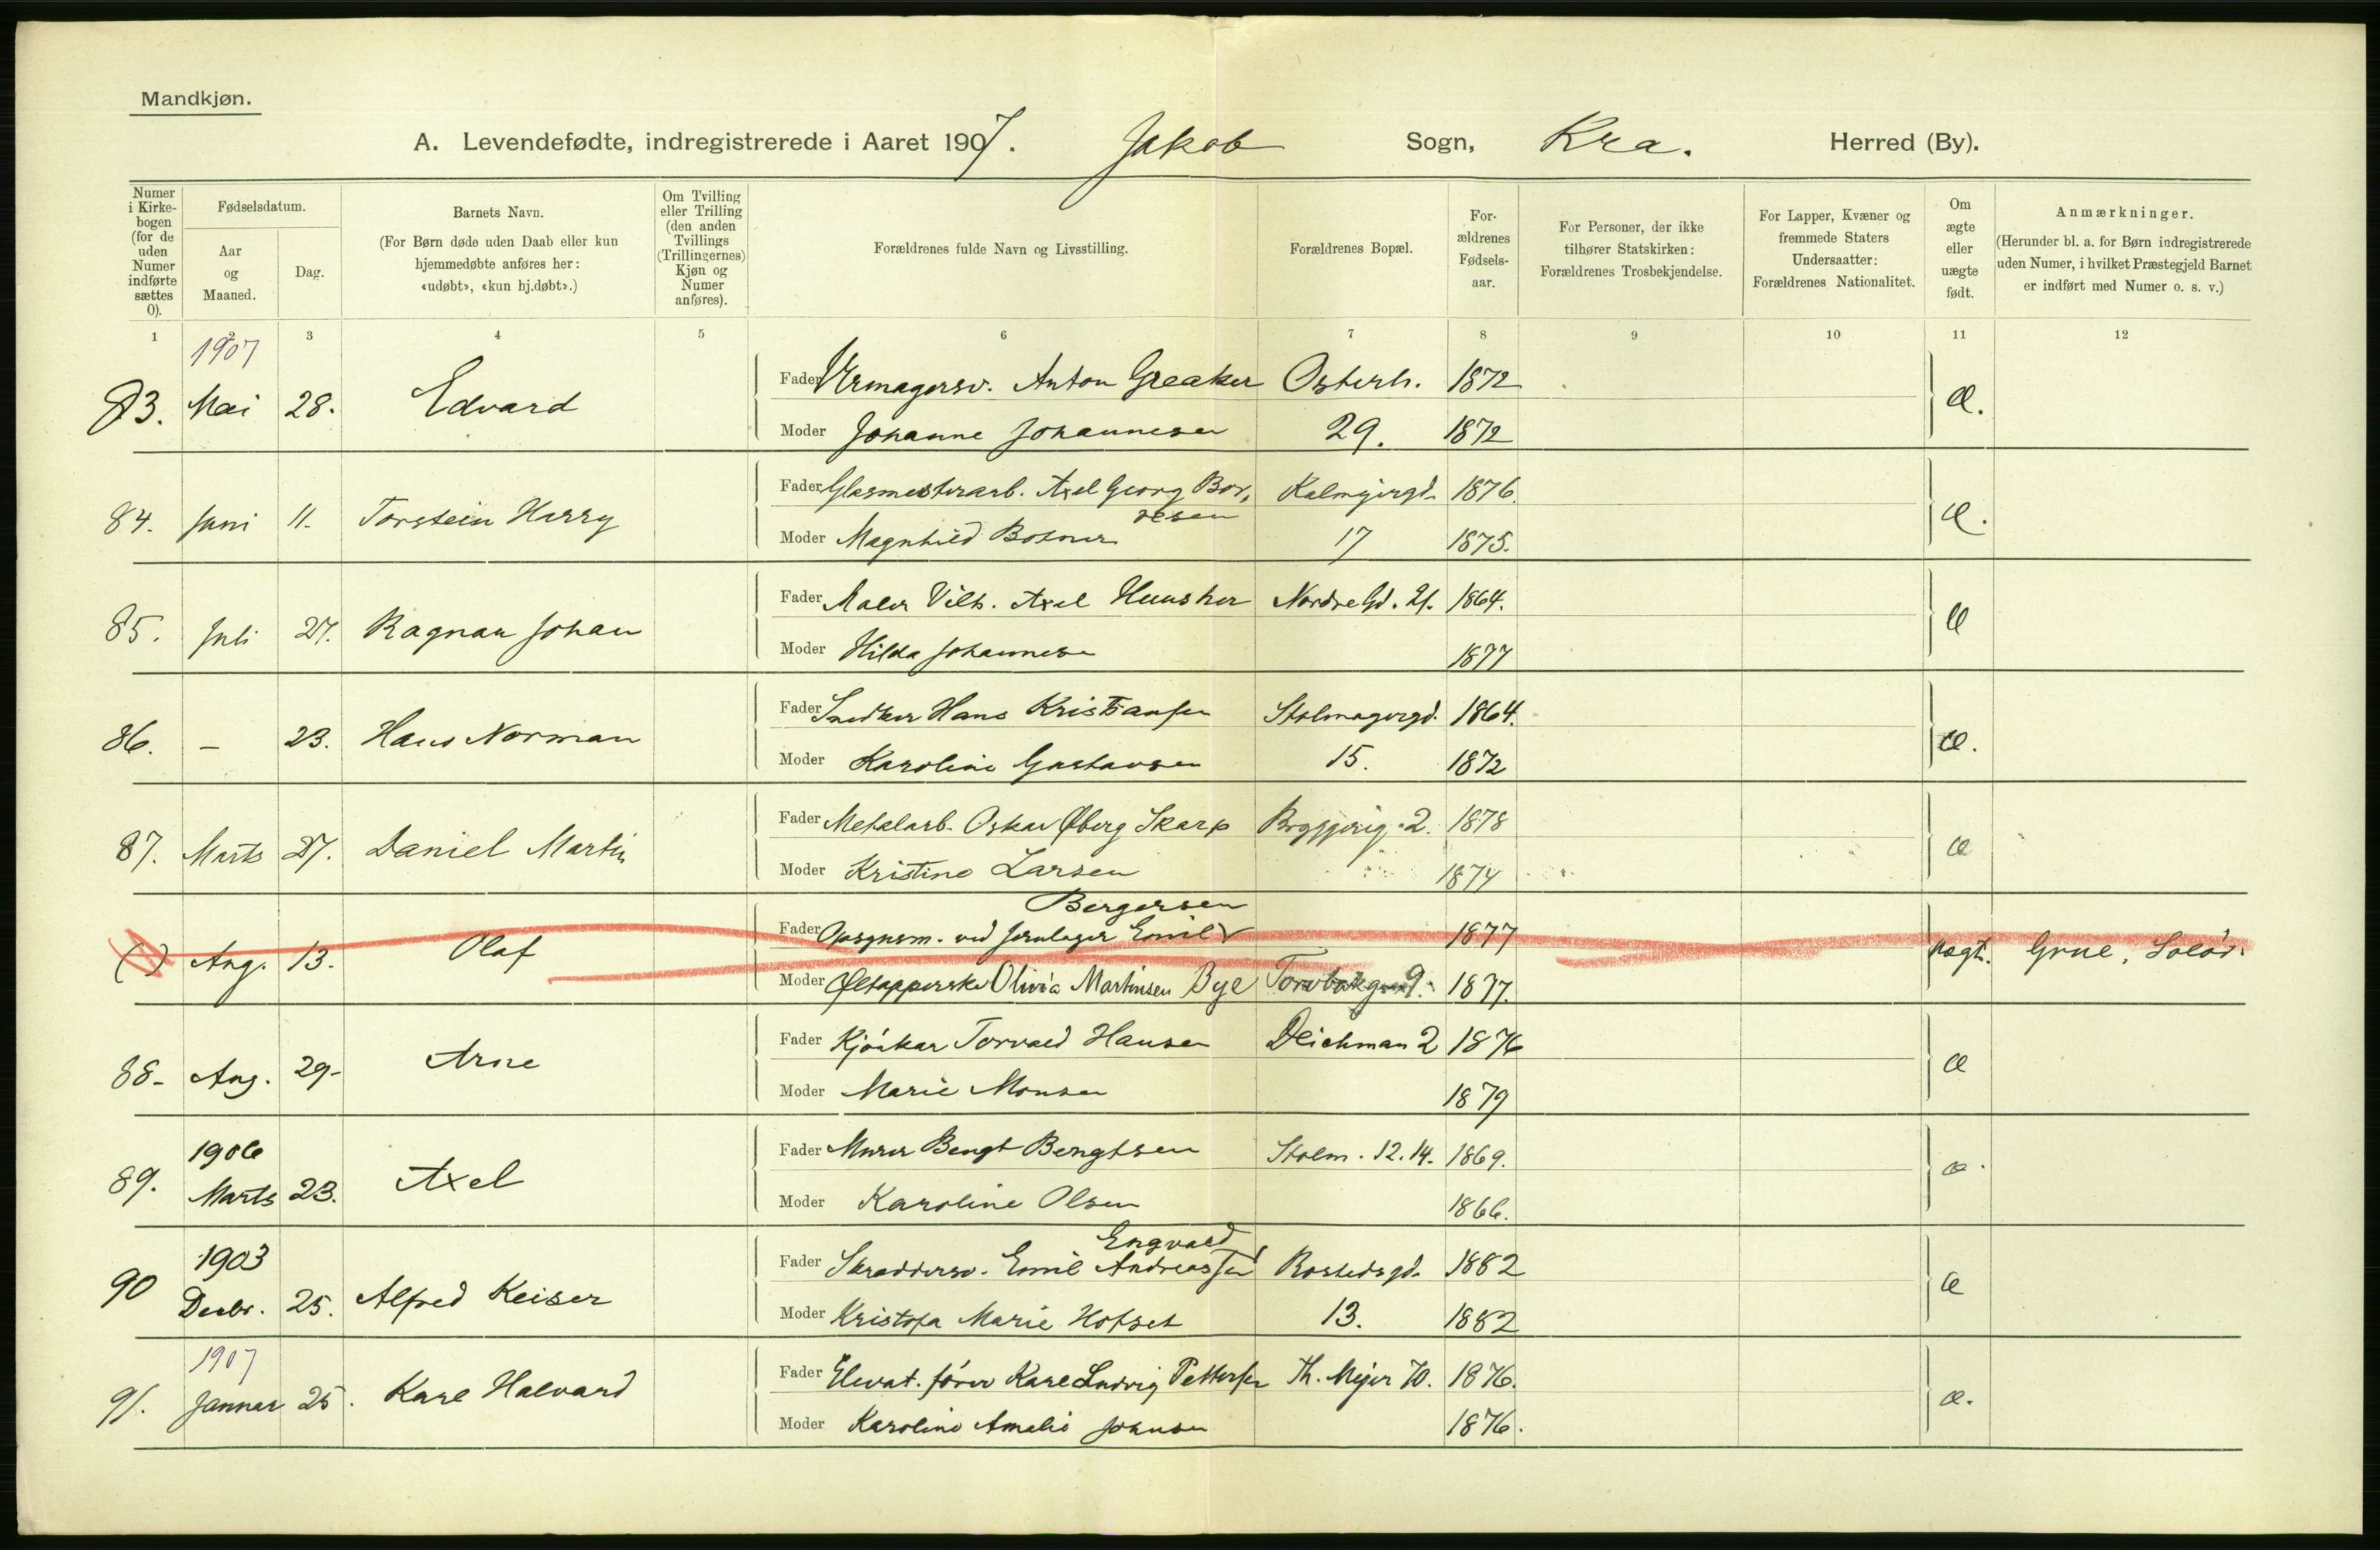 Mandkjøn.
A. Levendefødte, indregistrerede i Aaret 1907. Jakob Sogn, Kra. Herred (By).
Numer i Kirkebogen (for de uden Numer indførte sættes 0).
Fødselsdatum.
Aar og Maaned.
Dag.
Barnets Navn.
(For Børn døde uden Daab eller kun hjemmedøbte anføres her: «udøbt», «kun hj.døbt».)
Om Tvilling eller Trilling (den anden Tvillings (Trillingernes) Kjøn og Numer anføres).
Forældrenes fulde Navn og Livsstilling.
Forældrenes Bopæl.
Forældrenes Fødselsaar.
For Personer, der ikke tilhører Statskirken: Forældrenes Trosbekjendelse.
For Lapper, Kvæner og fremmede Staters Undersaatter: Forældrenes Nationalitet.
Om ægte eller uægte født.
Anmærkninger.
(Herunder bl. a. for Børn indregistrerede uden Numer, i hvilket Præstegjeld Barnet er indført med Numer o. s. v.)
1 2 3 4 5 6 7 8 9 10 11 12
1907
83. Mai 28. Edvard Fader Urmagersv. Anton Greaker Osterh. 1872 æ.
Moder Johanne Johannesen 29. 1872
84. Juni 11. Torstein Harry Fader Glasmesterarb. Axel Georg Bor, 1876. æ.
resen
Moder Magnhild 17 1875.
85. Juli 27. Ragnar Johan Fader Maler Vilh. Axel Nordregd. 21. 1864. æ
Moder Hilda Johannesen 1877
86. – 23. Hans Norman Fader Snedker Hans Kristiansen Stolmagergd. 1864. æ.
Moder Karoline Gustavsen 15. 1872
87. Marts 27. Daniel Martin Fader Metalarb. Oskar Øberg Skarp Bryggerig. 2. 1878 æ
Moder Kristine Larsen 1874
Bergersen
( ) Aug. 13. Olaf Fader Opsynsm. ved Jernlager Emil 1877 uægt. Grue, Solør.
Moder Øltapperske Olivia Martinsen Bye Torvbakkg. 9. 1877.
88- Aug. 29- Arne Fader Kjørkar Torvald Hansen Deichman 2 1876 æ
Moder Marie Monsen 1879
1906
89. Marts 23. Axel Fader Murer Bengt Bengtsen Stolm. 12.14. 1869. æ.
Moder Karoline Olsen 1866.
1903 Engvald
90 Decbr. 25. Alfred Keiser Fader Skræddersv. Emil Andreassen Rostedsgd. 1882 æ
Moder Kristofa Marie Hofset 13. 1882
1907
91. Januar 25. Karl Halvard Fader Elevat. fører Karl Ludvig Pettersen Th. Mejer 70. 1876. æ.
Moder Karoline Amalie Johnsen 1876.